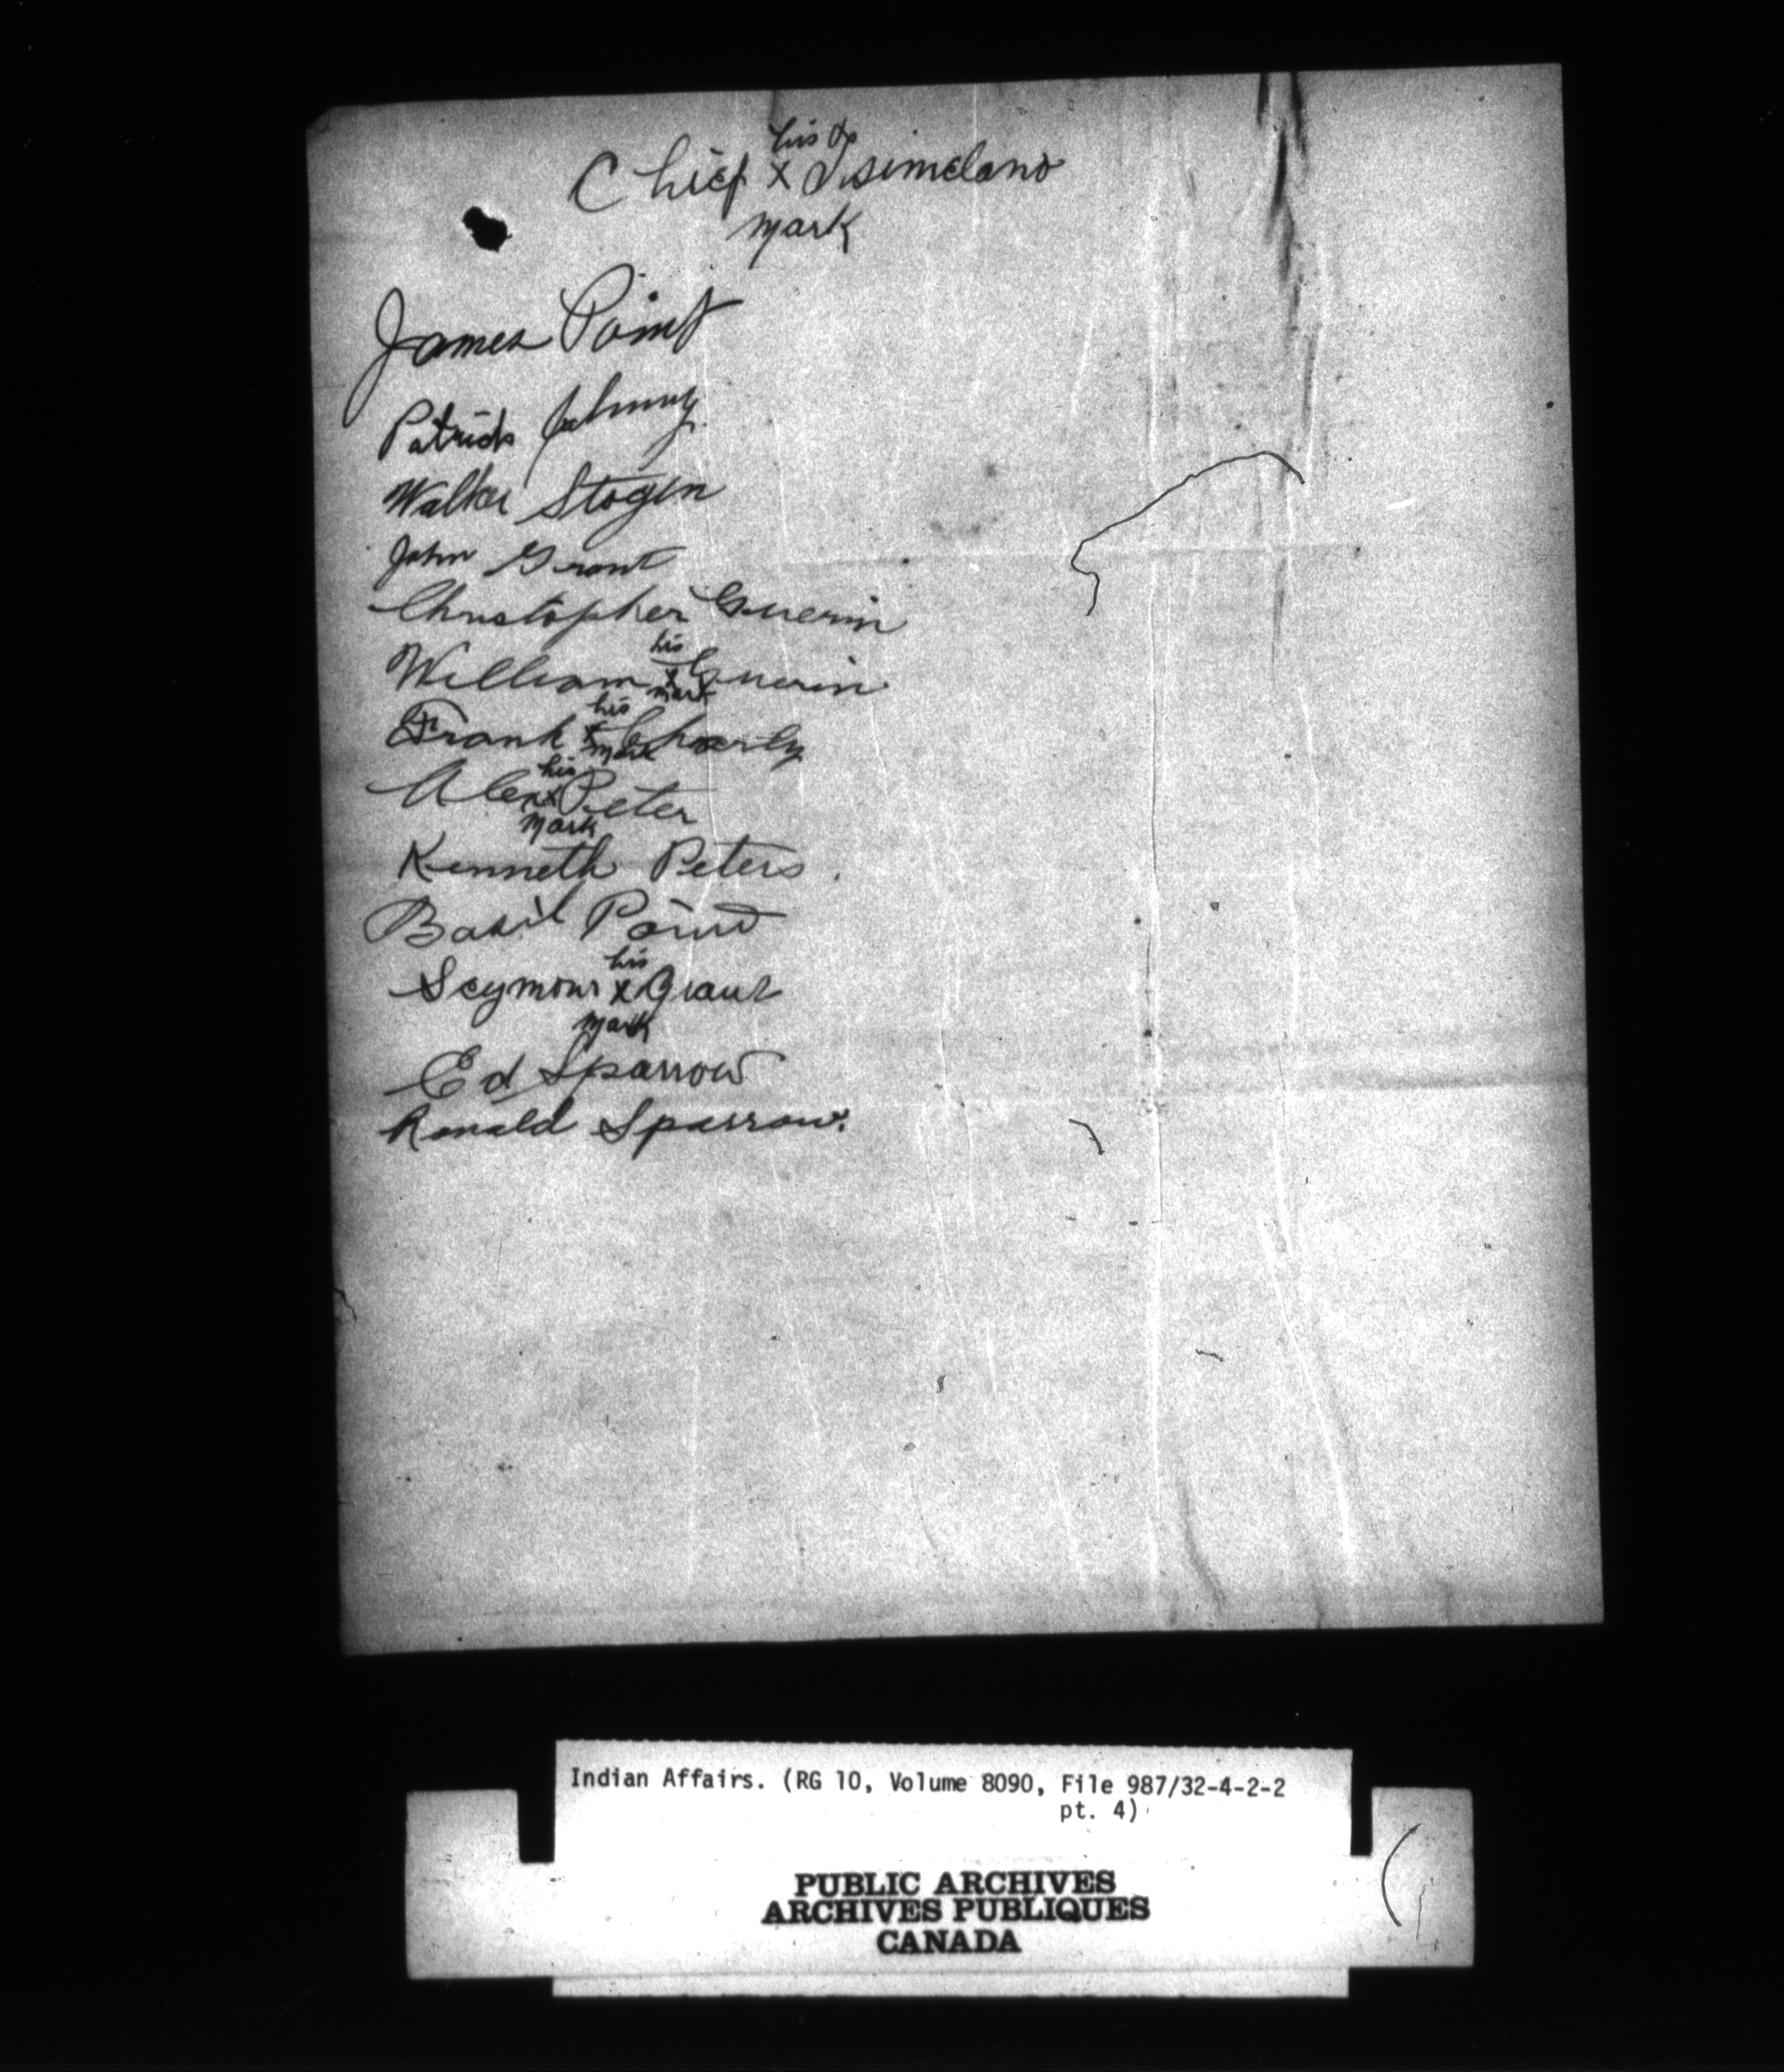 his
Chief X Tsimelano
mark
James Point
Patrick Johnny
Walker Stogin
John Grant
Christopher Guerin
his
William x Guerin
mark
his
Frank x Charly
mark
his
Alex x Peter
mark
Kenneth Peters.
Basil Point
his
Seymour x Grant
mark
Ed Sparrow
Ronald Sparrow.
Indian Affairs. (RG 10, Volume 8090, File 987/32-4-2-2
pt. 4)
PUBLIC ARCHIVES
ARCHIVES PUBLIQUES
CANADA